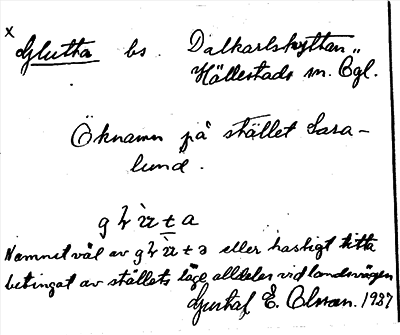 x
Glutta bs. Dalkarlshyttan,
Hällestads sn. Ögl.
Öknamn på stället Sara-
lund.
Namnet väl av eller hastigt titta
betingat av ställets läge alldeles vid landsvägen
Gustaf E. 1937